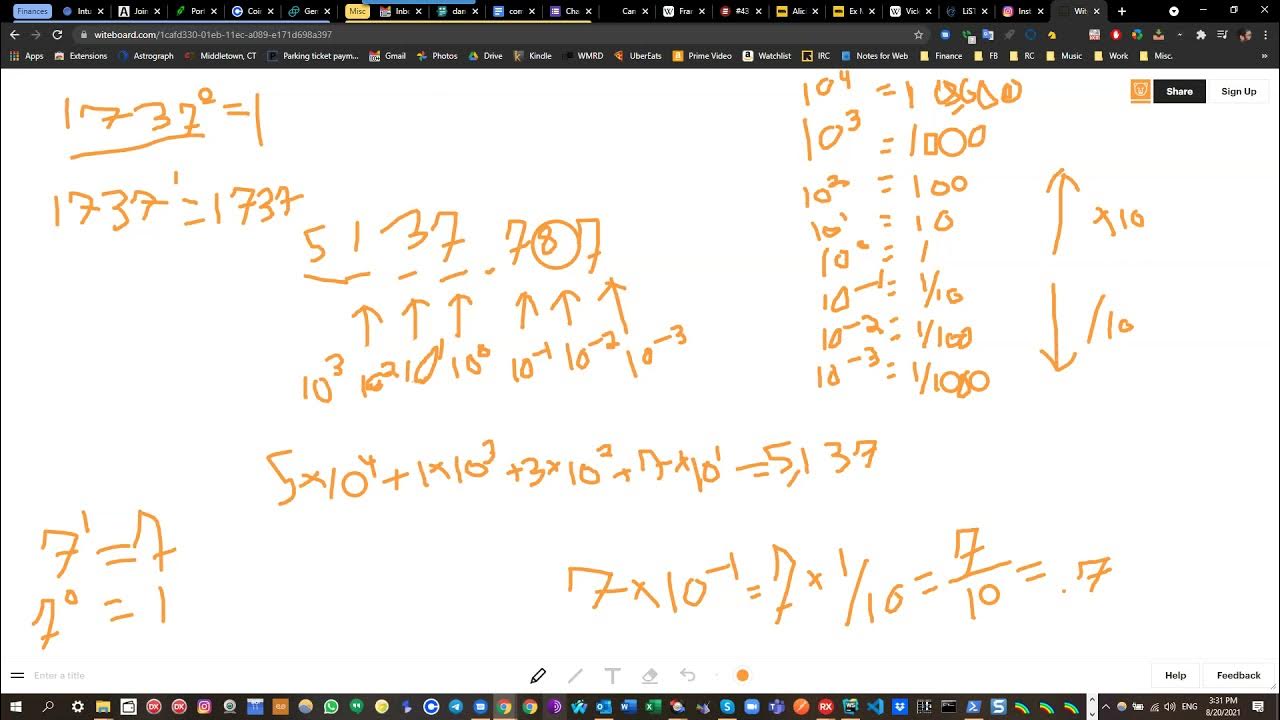 Finances
A
Join
Port
Coin
Gene
Misc
Inte
Mat
Inbo
dar
com
Char
Can
Wra
Fra
Ex
Alic
Ex N
Vick
LIST
Inst
Wit
witeboard.com/1cafd330-01eb-11ec-a089-e171d698a397
Apps
Extensions
Astrograph
Middletown, CT
Parking ticket paym...
Gmail
Prime
Kindle
WMRD
UberEats
Prime Video
Watchlist
IRC
Notes for Web
Finance
FB
RC
Music
Work
Misc.
Share
Sign Up
1737⁰ = 1
1737¹ = 1737
10⁴ = 10,000
10³ = 1000
10² = 100
10¹ = 10
10⁰ = 1
10⁻¹ = 1/10
10⁻² = 1/100
10⁻³ = 1/1000
×10
/10
5137.787
10³ 10² 10¹ 10⁰ 10⁻¹ 10⁻² 10⁻³
5×10⁴ + 1×10³ + 3×10² + 7×10¹ = 5,137
7¹ = 7
7⁰ = 1
7×10⁻¹ = 7×1/10 = 7/10 = .7
Enter a title
T
Help
Feedback
ENG
3:31 PM
8/20/2021